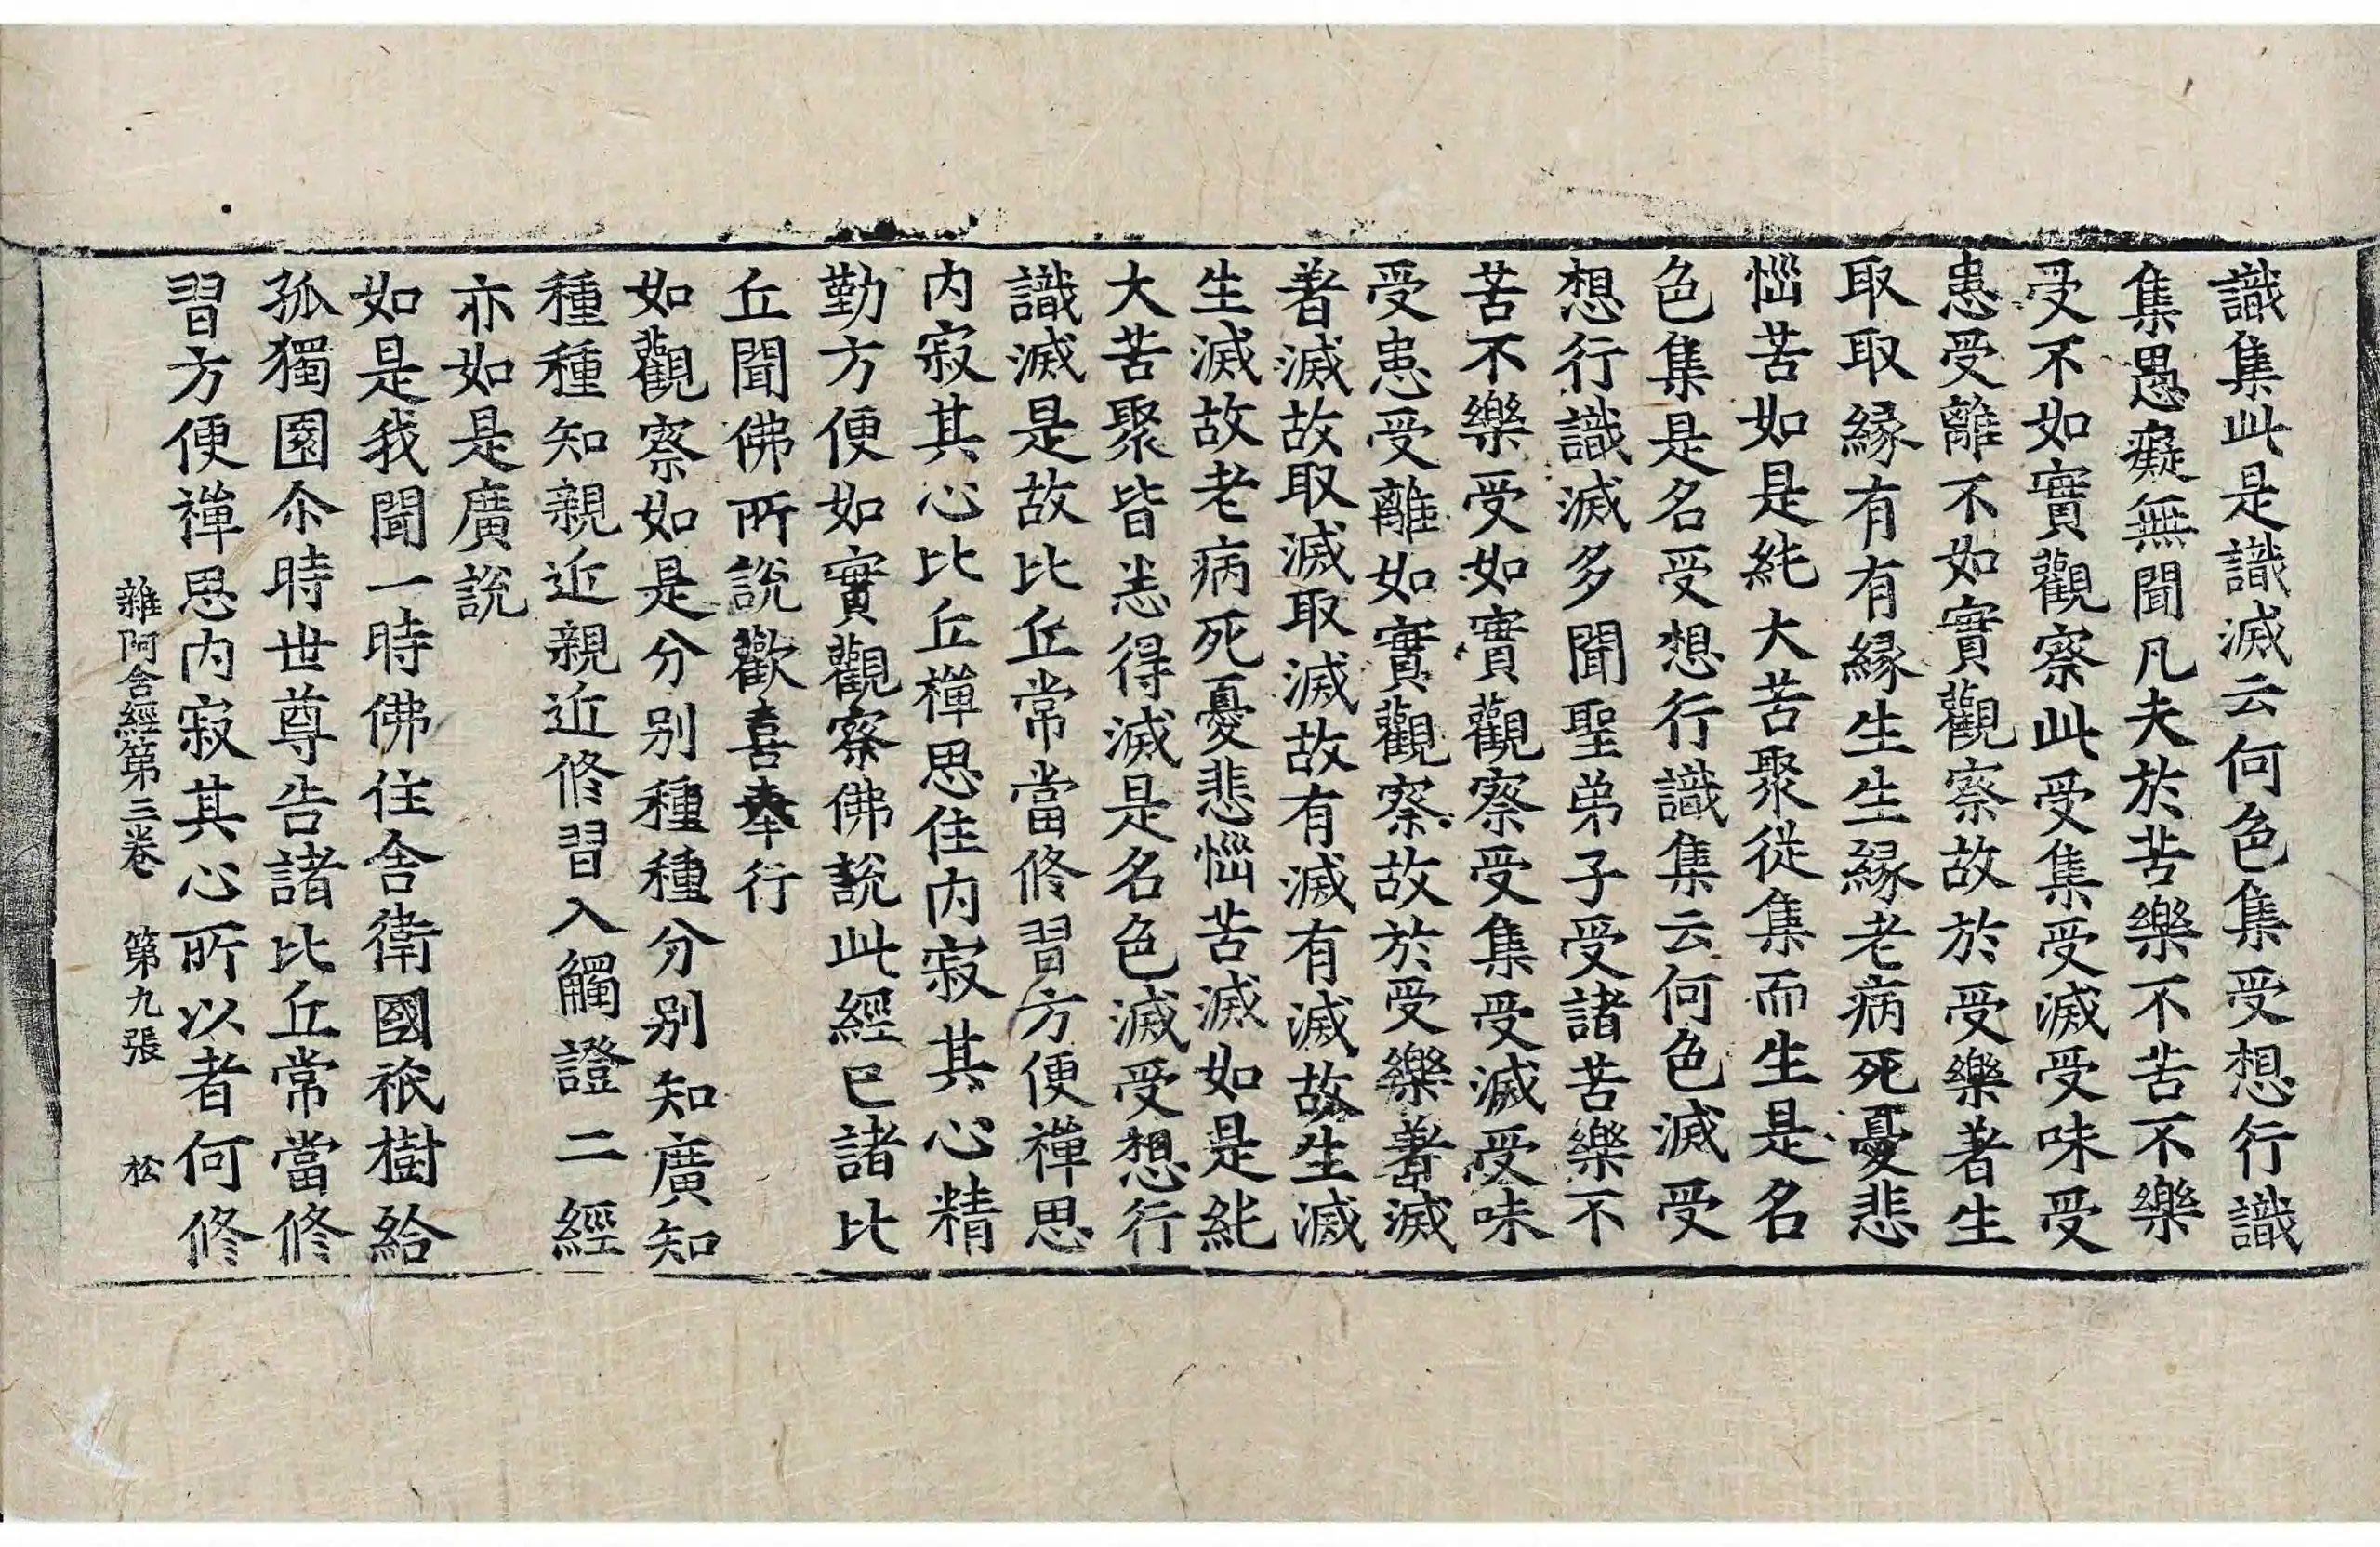 識集此是識滅云何色集受想行識
集愚癡無聞凡夫於苦樂不苦不樂
受不如實觀察此受集受滅受味受
患受離不如實觀察故於受樂著生
取取緣有有緣生生緣老病死憂悲
惱苦如是純大苦聚從集而生是名
色集是名受想行識集云何色滅受
想行識滅多聞聖弟子受諸苦樂不
苦不樂受如實觀察受集受滅受味
受患受離如實觀察故於受樂著滅
著滅故取滅取滅故有滅有滅故生滅
生滅故老病死憂悲惱苦滅如是純
大苦聚皆悉得滅是名色滅受想行
識滅是故比丘常當修習方便禪思
内寂其心比丘禪思住内寂其心精
勤方便如實觀察佛說此經已諸比
丘聞佛所說歡喜奉行
如觀察如是分别種種分别知廣知
種種知親近親近修習入觸證二經
亦如是廣說
如是我聞一時佛住舍衛國祇樹給
孤獨園尒時世尊告諸比丘常當修
習方便禪思内寂其心所以者何修
雜阿含經第三卷　第九張　松